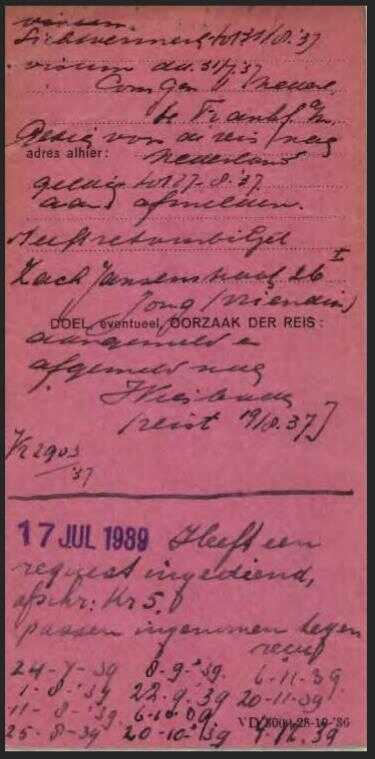 visum
Sichtvermerk tot 31/8.'37
visum dd. 31/7.'37
Cons Gen v Nederl.
te Frankf a/M.
Geldig voor de reis naar
adres alhier: Nederland
geldig tot 27-8-'37
aan afmelden.
Heeft retourbiljet
Zach Jansenstraat 26 I
Jong (vriendin)
DOEL, eventueel, OORZAAK DER REIS:
aangemeld en
afgemeld naar
Wiesbaden
(reist 19/8.37]
Kr 2903
'37
17 JUL 1939 Heeft een
request ingediend,
afschr: Kr 5.
passen ingenomen tegen
reçu
24-7-39 8-9-'39. 6-11-39
1-8-'39 22.9.39 20-11-39
11-8-'39. 6-10-39
25-8-39 20-10-'39 4-12.39
VD 8000-28-10-'36